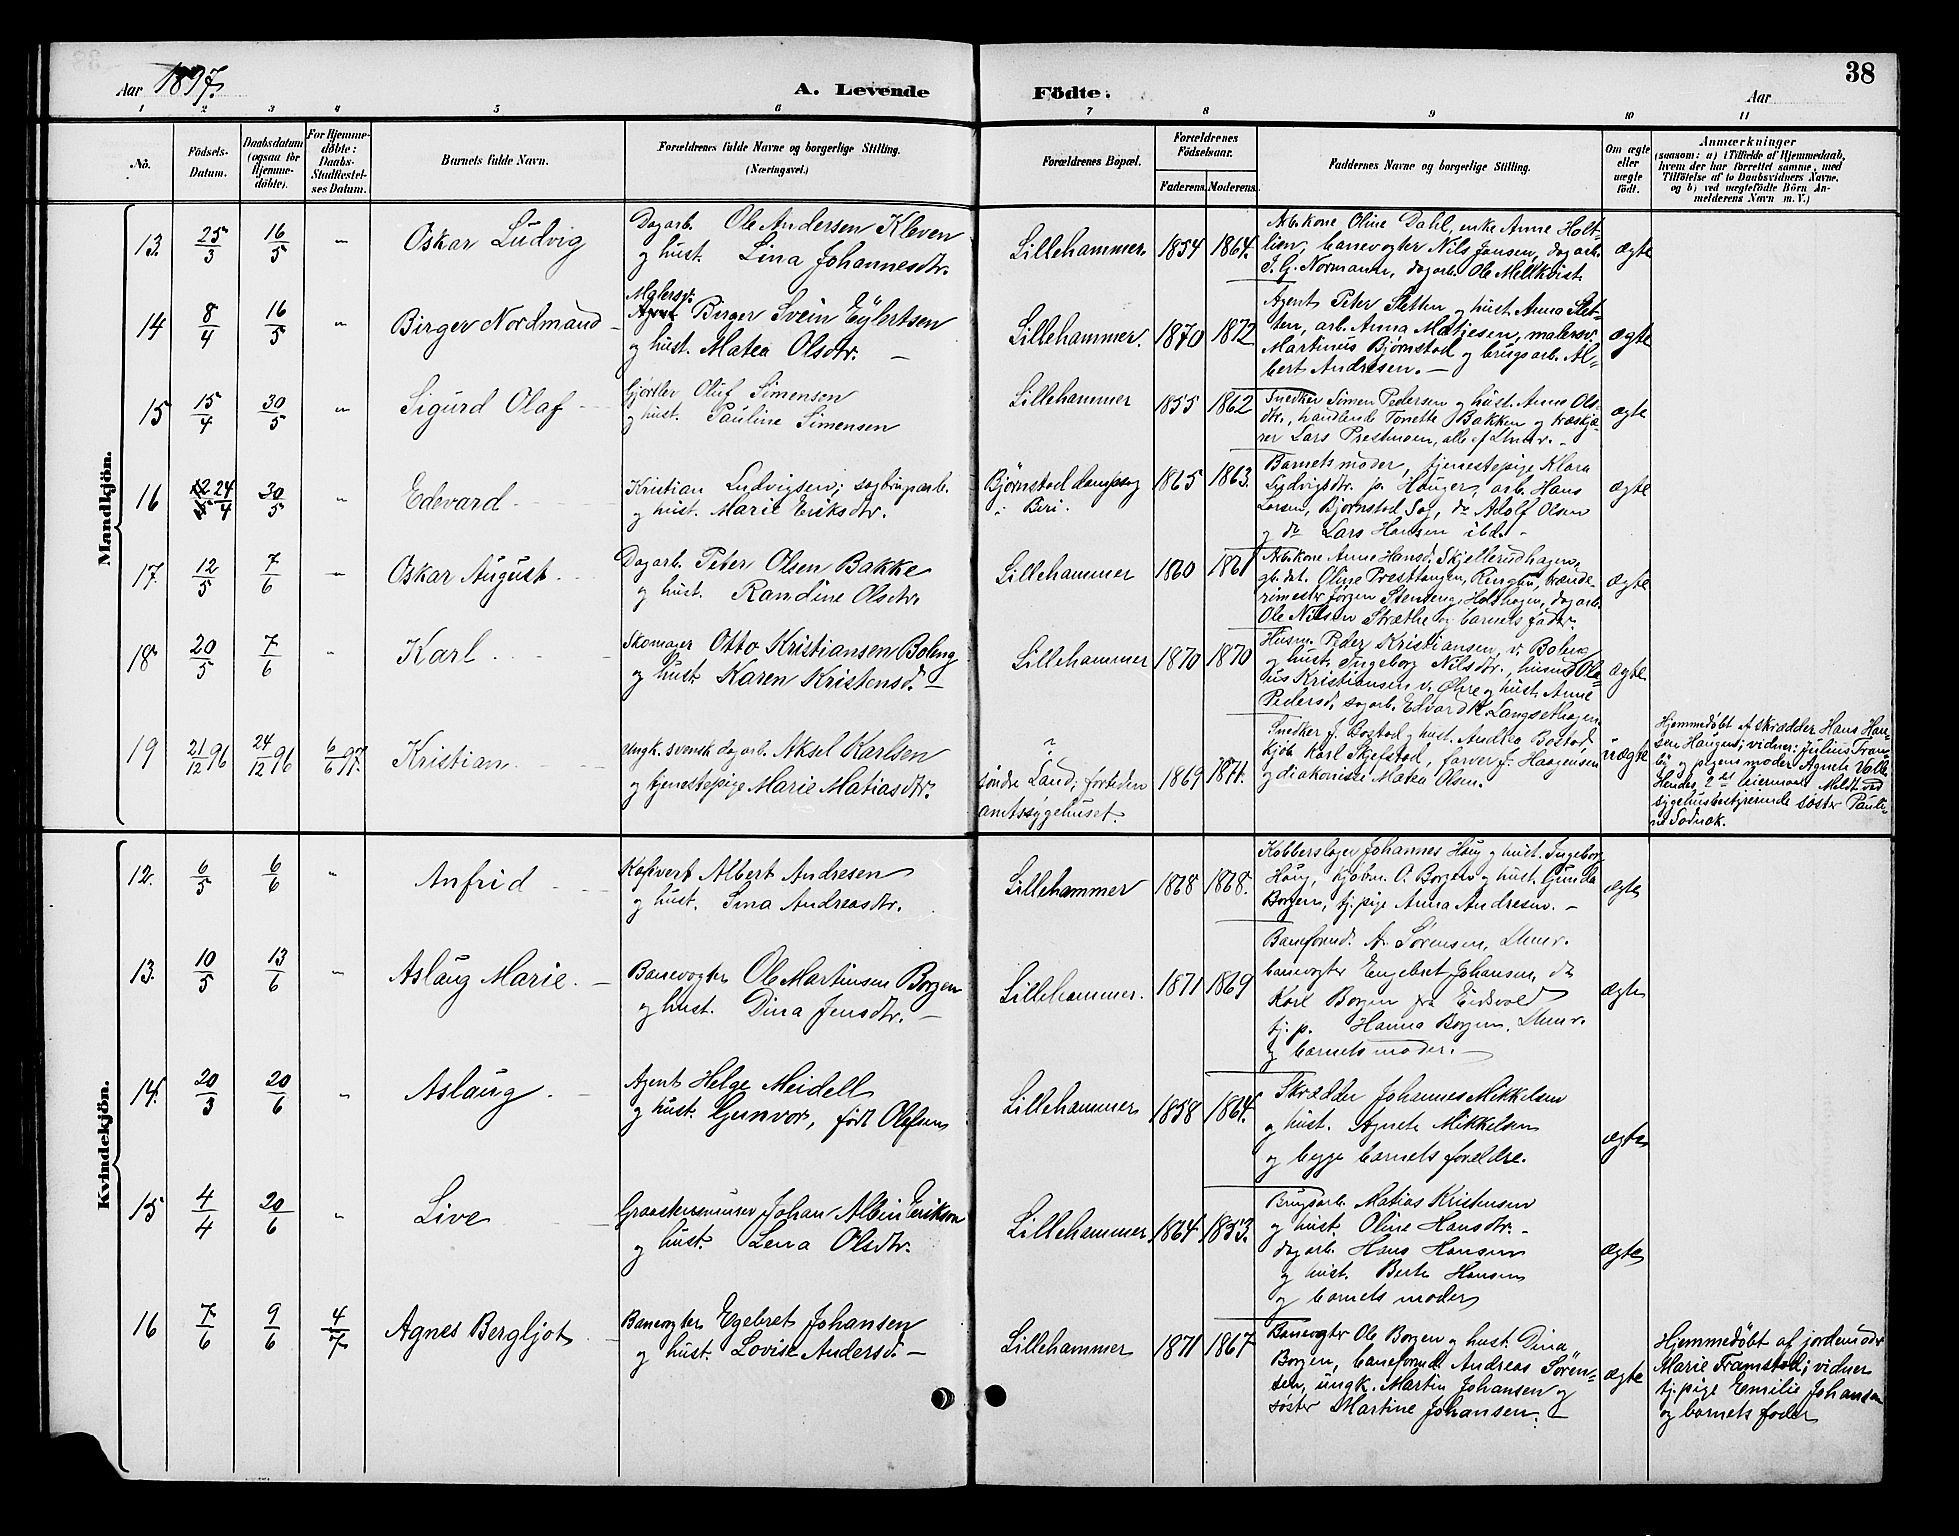 38
Aar 1897.
A. Levende Födte.
Aar
1 2 3 4 5 6 7 8 9 10 11
No.
Födsels-Datum.
Daabsdatum (ogsaa for Hjemmedöbte).
For Hjemmedöbte: Daabs-Stadfæstelses Datum.
Barnets fulde Navn.
Forældrenes fulde Navne og borgerlige Stilling. (Næringsvei.)
Forældrenes Bopæl.
Forældrenes Födselsaar.
Faderens. Moderens.
Faddernes Navne og borgerlige Stilling.
Om ægte eller uægte født.
Anmærkninger
(saasom: a) i Tilfælde af Hjemmedaab,
hvem der har forrettet samme, med
Tilföielse af to Daabsvidners Navne,
og b) ved uægtefödte Börn An-
melderens Navn m. V.)
Mandkjön.
13. 25/3 16/5 " Oskar Ludvig
Dagarb. Ole Andersen Kleven
og hust. Lina Johannesdtr.
Lillehammer. 1854 1864.
Arb.kone Oline Dahl, enke Anne Holt-
lien, banevogter Nils Jansen, dagarb.
J. G. Normann, dagarb. Ole Mellkvist.
ægte
14 8/4 16/5 " Birger Nordmand
Malersv.
Birger Svein Eylertsen
og hust. Matea Olsdtr.
Lillehammer. 1870 1872
Agent Peter Sletten og hust. Anna Slet-
ten, arb. Anna Matjesen, malersv.
Martinus Bjørnstad og brugsarb. Al-
bert Andresen.
ægte
15 15/4 30/5 " Sigurd Olaf
Gjørtler Oluf Simensen
og hust. Pauline Simensen
Lillehammer 1855 1862
Snedker Simen Pedersen og hust. Anne Ols-
dtr., handlende Tonette Bakken og træskjæ-
rer Lars Prestmoen, alle af Lhmr.
ægte
16 24/4 30/5 " Edevard
Kristian Ludvigsen, sagbrugarb.
og hust. Marie Eriksdtr.
Bjørnstad dampsag
i Biri.
1865 1863.
Barnets moder, tjenestepige Klara
Ludvigsdtr. p. Hauger, arb. Hans
Larsen, Bjørnstad Sag, do Adolf Olsen
og do Lars Hansen ibd.
ægte
17. 12/5 7/6 " Oskar August
Dagarb. Peter Olsen Bakke
og hust. Randine Olsdtr.
Lillehammer 1860 1861
Arb.kone Anne Hansd. Skjellerudhagen,
gb.dat. Oline Presttangen, Ringbu, brænde-
rimester Jørgen Stenseng, Holthagen, dagarb.
Ole Nilsen Stræthe og barnets fader.
ægte
18 20/5 7/6 " Karl
Skomager Otto Kristiansen Boleng
og hust. Karen Kristensd.
Lillehammer 1870 1870
Husm. Peder Kristiansen v. Boleng
og hust. Ingeborg Nilsdtr., husm. Ola-
us Kristiansen v. Øhre og hust. Anne
Pedersd., sagarb. Edvard K. Langsethagen.
ægte
19 21/12 96 24/12 96 6/6 97. Kristian
Ungk. svensk dagarb. Aksel Karlsen
og tjenestepige Marie Matiasdtr.
?
søndre Land, fortiden
amtssygehuset.
1869 1871.
Snedker J. Bostad og hust. Andrea Bostad,
kjøb. Karl Skjefstad, farver J. Haagensen
og diakonisse Matea Olsen.
uægte
Hjemmedøbt af skrædder Hans Han-
sen Haugens; vidner: Julius Fram-
bu og pigens moder Agnete Volle.
Hendes 2det leiermaal. Meldt ved
sygehusbestyrerinde søster Pauli-
ne
Kvindekjön.
12. 6/5 6/6 " Anfrid
Albert Andresen
og hust. Lina Andreasdtr.
Lillehammer 1868 1868.
Kobberslager Johannes Haug og hust. Ingeborg
Haug, kjøbm. O. Borgen og hust. Gunda
Borgen, tj.pige Anna Andresen.
ægte
13. 10/5 13/6 " Aslaug Marie.
Banevogter Ole Martinsen Borgen
og hust. Dina Jensdtr.
Lillehammer. 1871 1869
Baneformd. A. Sørensen, Lhmr.
banevogter Engebret Johansen, do
Karl Borgen fra Eidsvold
tj.p. Hanna Borgen, Lhmr.
og barnets moder.
ægte
14. 20/3 20/6 " Aslaug.
Agent Helge Meidell
og hust. Gunvor, født Olafsen
Lillehammer 1858 1864.
Skrædder Johannes Mikkelsen
og hust. Agnete Mikkelsen
og begge barnets forældre.
ægte
15 4/4 20/6 " Live
Graastensmurer Johan Albin Erikson
og hust. Lena Olsdtr.
Lillehammer 1864 1853.
Brugsarb. Matias Kristensen
og hust. Oline Hansdtr.
dagarb. Hans Hansen
og hust. Berte Hansen
og barnets moder
ægte
16 7/6 9/6 4/7 Agnes Bergljot
Banevogter Egebret Johansen
og hust. Lovise Andersd.
Lillehammer 1871 1867
Banevogter Ole Borgen og hust. Dina
Borgen, baneformd Andreas Søren-
sen, ungk. Martin Johansen og
søster Martine Johansen.
ægte
Hjemmedøbt af jordemoder
Marie Framstad; vidner
tj.pige Emilie Johansen
og barnets fader